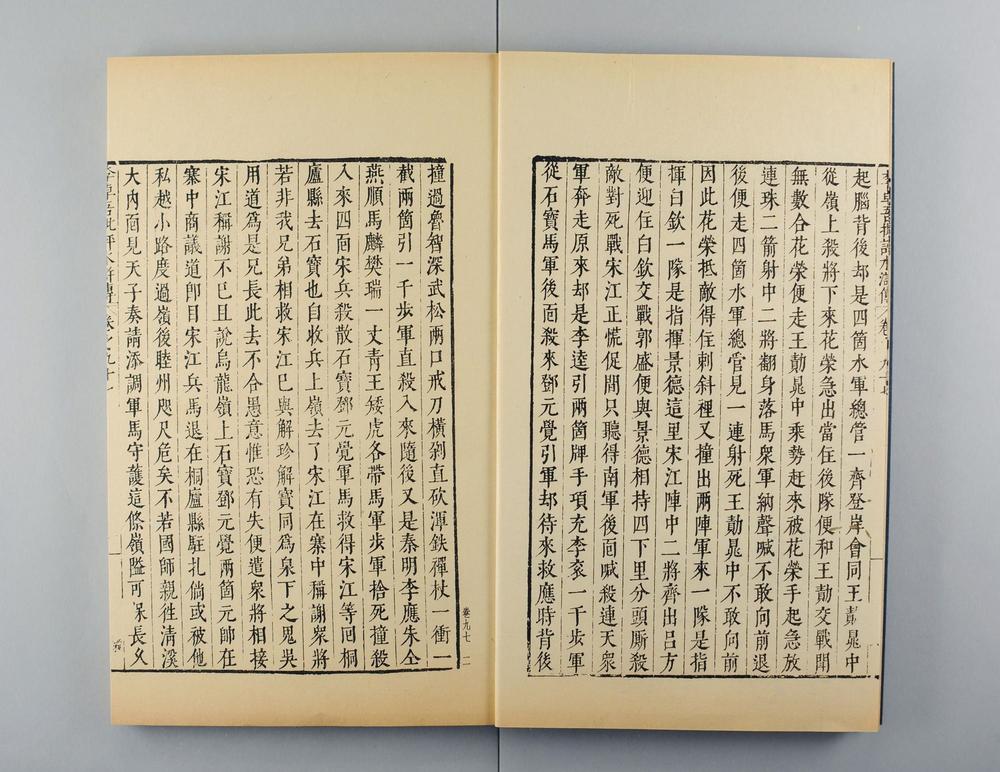 起腦背後却是四箇水軍總管一齊登岸會同王勣晁中
從嶺上殺將下來花榮急出當住後隊便和王勣交戰閗
無數合花榮便走王勣晁中乘勢赶來被花榮手起急放
連珠二箭射中二將翻身落馬衆軍納聲喊不敢向前退
後便走四箇水軍總管見一連射死王勣晁中不敢向前
因此花榮抵敵得住刺斜裡又撞出兩陣軍來一隊是指
揮白欽一隊是指揮景德這里宋江陣中二將齊出呂方
便迎住白欽交戰郭盛便與景德相持四下里分頭厮殺
敵對死戰宋江正慌促間只聽得南軍後面喊殺連天衆
軍奔走原來却是李逵引兩箇牌手項充李衮一千步軍
從石寶馬軍後面殺來鄧元覺引軍却待來救應時背後
撞過魯智深武松兩口戒刀橫剁直砍渾鉄禪杖一衝一
截兩箇引一千步軍直殺入來隨後又是秦明李應朱仝
燕順馬麟樊瑞一丈青王矮虎各帶馬軍步軍捨死撞殺
入來四面宋兵殺散石寶鄧元覺軍馬救得宋江等回桐
廬縣去石寶也自收兵上嶺去了宋江在寨中稱謝衆將
若非我兄弟相救宋江已與解珍解寶同爲泉下之鬼吳
用道爲是兄長此去不合愚意惟恐有失便遣衆將相接
宋江稱謝不已且說烏龍嶺上石寶鄧元覺兩箇元帥在
寨中商議道卽目宋江兵馬退在桐廬縣駐扎倘或被他
私越小路度過嶺後睦州咫尺危矣不若國師親徃清溪
大内面見天子奏請添調軍馬守護這條嶺隘可保長久
卷九七 二